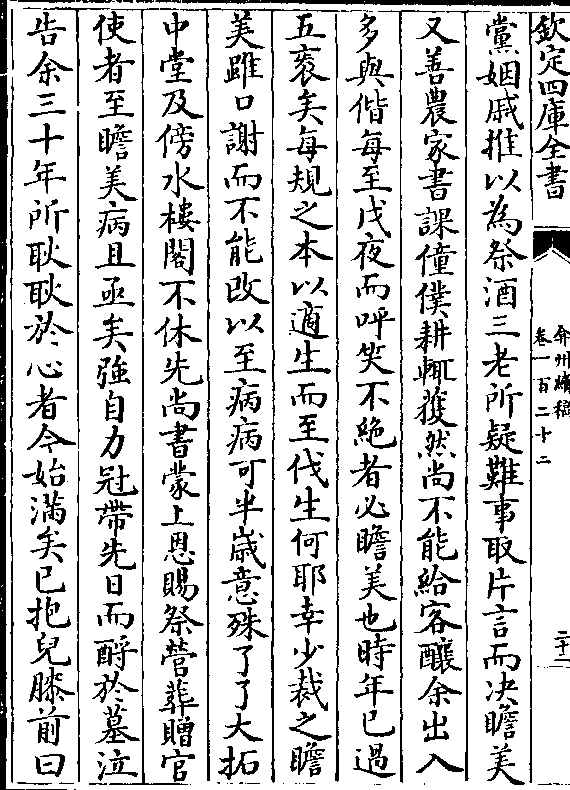 欽定四庫全書
弇州續稿
卷一百二十二
二十二
黨姻戚推以為祭酒三老所疑難事取片言而决瞻美
又善農家書課僮僕耕輒獲然尚不能給客釀余出入
多與偕每至戊夜而呼笑不絶者必瞻美也時年已過
五袠矣每規之本以適生而至伐生何耶幸少裁之瞻
美雖口謝而不能改以至病病可半歲意殊了了大拓
中堂及傍水樓閣不休先尚書蒙上恩賜祭營葬贈官
使者至瞻美病且亟矣強自力冠帶先日而酹於墓泣
告余三十年所耿耿於心者今始滿矣已抱兒膝前曰